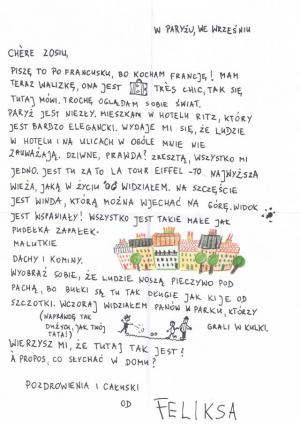 W PARYŻU, WE WRZEŚNIU
CHÈRE ZOSIU,
PISZĘ TO PO FRANCUSKU, BO KOCHAM FRANCJĘ! MAM
TERAZ WALIZKĘ, ONA JEST TRÈS CHIC, TAK SIĘ
TUTAJ MÓWI. TROCHĘ OGLĄDAM SOBIE ŚWIAT.
PARYŻ JEST NIEZŁY. MIESZKAM W HOTELU RITZ, KTÓRY
JEST BARDZO ELEGANCKI. WYDAJE MI SIĘ, ŻE LUDZIE
W HOTELU I NA ULICACH W OGÓLE MNIE NIE
ZAUWAŻAJĄ. DZIWNE, PRAWDA? ZRESZTĄ, WSZYSTKO MI
JEDNO. JEST TU ZA TO LA TOUR EIFFEL - TO NAJWYŻSZA
WIEŻA, JAKĄ W ŻYCIU WIDZIAŁEM. NA SZCZĘŚCIE
JEST WINDA, KTÓRĄ MOŻNA WJECHAĆ NA GÓRĘ. WIDOK
JEST WSPANIAŁY! WSZYSTKO JEST TAKIE MAŁE JAK
PUDEŁKA ZAPAŁEK-
MALUTKIE
DACHY I KOMINY.
WYOBRAŹ SOBIE, ŻE LUDZIE NOSZĄ PIECZYWO POD
PACHĄ, BO BUŁKI SĄ TU TAK DŁUGIE JAK KIJE OD
SZCZOTKI. WCZORAJ WIDZIAŁEM PANÓW W PARKU, KTÓRZY
(NAPRAWDĘ TAK
DUŻYCH, JAK TWÓJ
TATA!) GRALI W KULKI.
WIERZYSZ MI, ŻE TUTAJ TAK JEST?
À PROPOS, CO SŁYCHAĆ W DOMU?
POZDROWIENIA I CAŁUSKI
OD FELIKSA